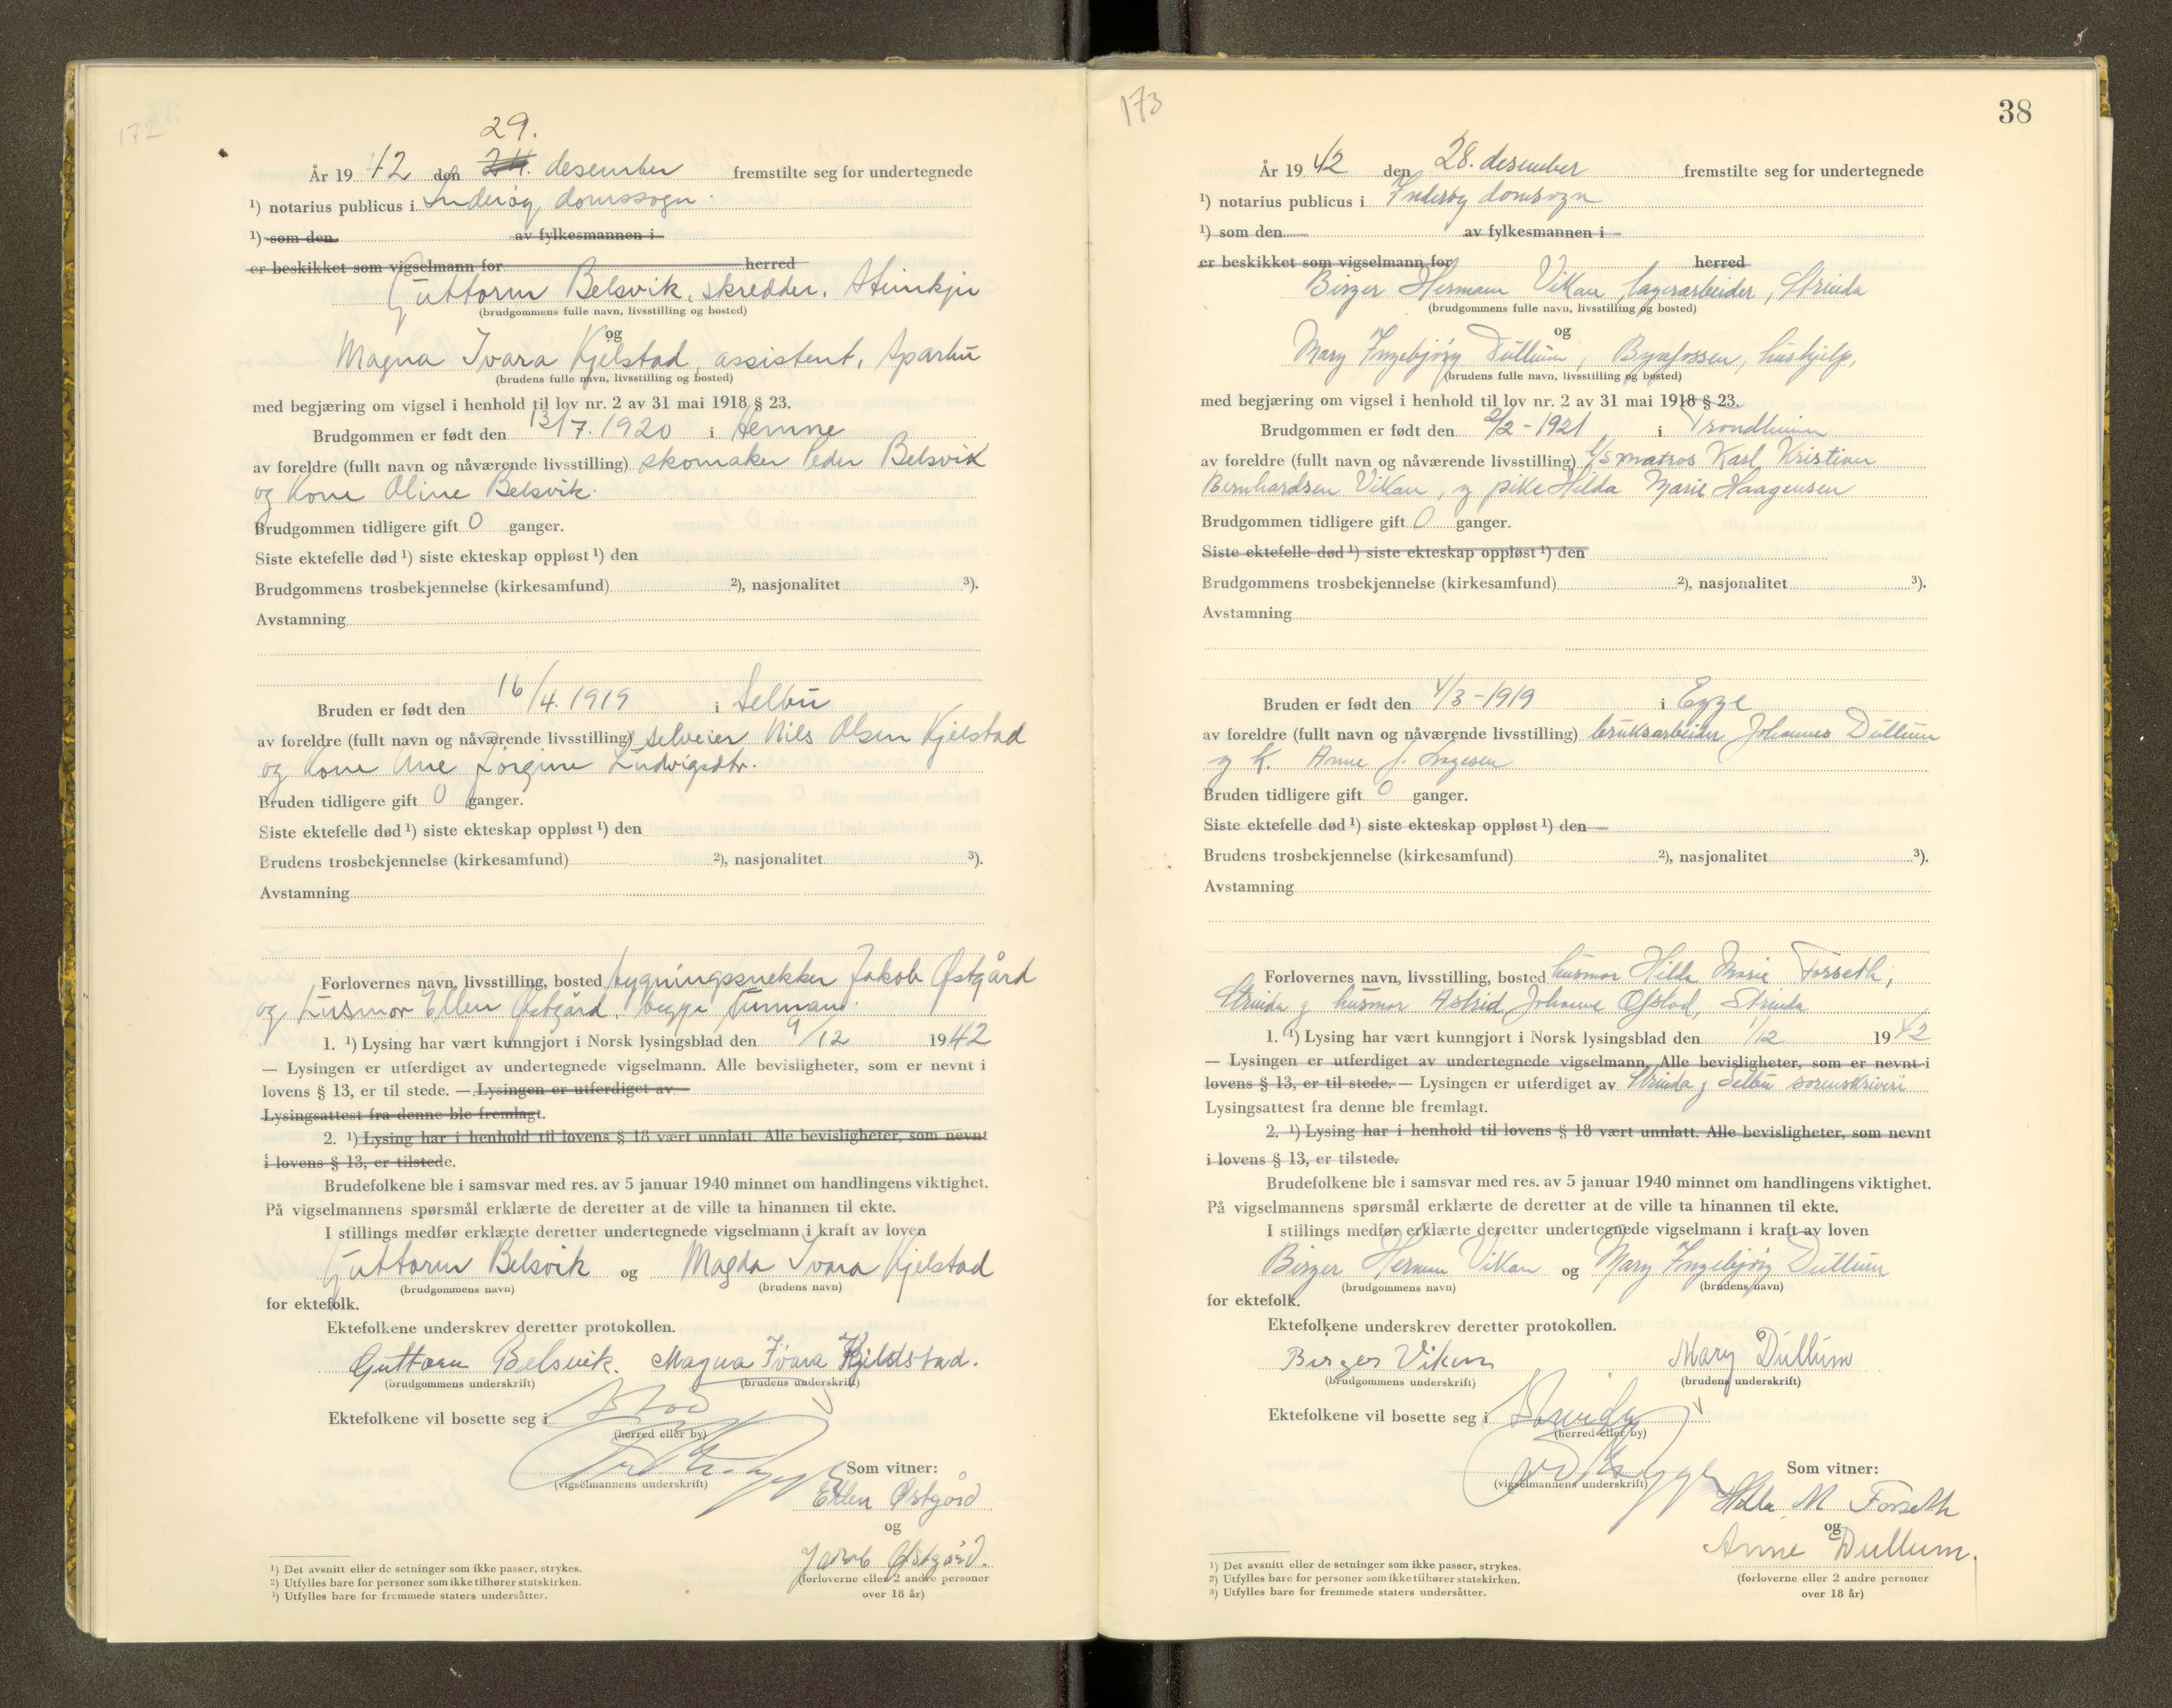 172
29.
År 19 42 den 24. desember fremstilte seg for undertegnede
¹) notarius publicus i Inderøy domssogn.
¹) som den av fylkesmannen i
er beskikket som vigselmann for herred
Guttorm Belsvik, skredder, Steinkjer
(brudgommens fulle navn, livsstilling og bosted)
og
Magna Ivara Kjelstad, assistent, Sparbu
(brudens fulle navn, livsstilling og bosted)
med begjæring om vigsel i henhold til lov nr. 2 av 31 mai 1918 § 23.
Brudgommen er født den 13/7. 1920 i Hemne
av foreldre (fullt navn og nåværende livsstilling) skomaker Peder Belsvik
og kone Oline Belsvik.
Brudgommen tidligere gift 0 ganger.
Siste ektefelle død ¹) siste ekteskap oppløst ¹) den
Brudgommens trosbekjennelse (kirkesamfund) ²), nasjonalitet ³).
Avstamning
Bruden er født den 16/4. 1919 i Selbu
av foreldre (fullt navn og nåværende livsstilling) selveier Nils Olsen Kjelstad
og kone Ane Jørgine Ludvigsdtr.
Bruden tidligere gift 0 ganger.
Siste ektefelle død ¹) siste ekteskap oppløst ¹) den
Brudens trosbekjennelse (kirkesamfund) ²), nasjonalitet ³).
Avstamning
Forlovernes navn, livsstilling, bosted bygningssnekker Jakob Østgård
og husmor Ellen Østgård, begge
1. ¹) Lysing har vært kunngjort i Norsk lysingsblad den 9/12 1942
— Lysingen er utferdiget av undertegnede vigselmann. Alle bevisligheter, som er nevnt i
lovens § 13, er til stede. — Lysingen er utferdiget av
Lysingsattest fra denne ble fremlagt.
2. ¹) Lysing har i henhold til lovens § 18 vært unnlatt. Alle bevisligheter, som nevnt
i lovens § 13, er tilstede.
Brudefolkene ble i samsvar med res. av 5 januar 1940 minnet om handlingens viktighet.
På vigselmannens spørsmål erklærte de deretter at de ville ta hinannen til ekte.
I stillings medfør erklærte deretter undertegnede vigselmann i kraft av loven
Guttorm Belsvik og Magda Ivara Kjelstad
(brudgommens navn) (brudens navn)
for ektefolk.
Ektefolkene underskrev deretter protokollen.
Guttorm Belsvik. Magna Ivara Kjelstad.
(brudgommens underskrift) (brudens underskrift)
Ektefolkene vil bosette seg i Stod
(herred eller by)
(vigselmannens underskrift)
Som vitner:
Ellen Østgård
og
Jakob Østgård.
(forloverne eller 2 andre personer
over 18 år)
¹) Det avsnitt eller de setninger som ikke passer, strykes.
²) Utfylles bare for personer som ikke tilhører statskirken.
³) Utfylles bare for fremmede staters undersåtter.
173
38
År 19 42 den 28. desember fremstilte seg for undertegnede
¹) notarius publicus i Inderøy domsogn
¹) som den av fylkesmannen i
er beskikket som vigselmann for herred
Birger Herman Vikan, lagerarbeider, Strinda
(brudgommens fulle navn, livsstilling og bosted)
og
Mary Ingebjørg Dullum, Byafossen, hushjelp,
(brudens fulle navn, livsstilling og bosted)
med begjæring om vigsel i henhold til lov nr. 2 av 31 mai 1918 § 23.
Brudgommen er født den 2/2 - 1921 i Trondheim
av foreldre (fullt navn og nåværende livsstilling) matros Karl Kristian
Bernhardsen Vikan, og pike Hilda Marie Haagensen
Brudgommen tidligere gift 0 ganger.
Siste ektefelle død ¹) siste ekteskap oppløst ¹) den
Brudgommens trosbekjennelse (kirkesamfund) ²), nasjonalitet ³).
Avstamning
Bruden er født den 4/3 - 1919 i Egge
av foreldre (fullt navn og nåværende livsstilling) bruksarbeider Johannes Dullum
og k. Anne J.
Bruden tidligere gift 0 ganger.
Siste ektefelle død ¹) siste ekteskap oppløst ¹) den
Brudens trosbekjennelse (kirkesamfund) ²), nasjonalitet ³).
Avstamning
Forlovernes navn, livsstilling, bosted husmor Hilda Marie Forseth,
Strinda og husmor Astrid Johanne Ofstad, Strinda
1. ¹) Lysing har vært kunngjort i Norsk lysingsblad den 1/12 1942
— Lysingen er utferdiget av undertegnede vigselmann. Alle bevisligheter, som er nevnt i
lovens § 13, er til stede. — Lysingen er utferdiget av Strinda og Selbu sorenskriveri
Lysingsattest fra denne ble fremlagt.
2. ¹) Lysing har i henhold til lovens § 18 vært unnlatt. Alle bevisligheter, som nevnt
i lovens § 13, er tilstede.
Brudefolkene ble i samsvar med res. av 5 januar 1940 minnet om handlingens viktighet.
På vigselmannens spørsmål erklærte de deretter at de ville ta hinannen til ekte.
I stillings medfør erklærte deretter undertegnede vigselmann i kraft av loven
Birger Herman Vikan og Mary Ingebjørg Dullum
(brudgommens navn) (brudens navn)
for ektefolk.
Ektefolkene underskrev deretter protokollen.
Birger Vikan Mary Dullum
(brudgommens underskrift) (brudens underskrift)
Ektefolkene vil bosette seg i Strinda
(herred eller by)
(vigselmannens underskrift)
Som vitner:
Hilda M Forseth
og
Anne Dullum.
(forloverne eller 2 andre personer
over 18 år)
¹) Det avsnitt eller de setninger som ikke passer, strykes.
²) Utfylles bare for personer som ikke tilhører statskirken.
³) Utfylles bare for fremmede staters undersåtter.